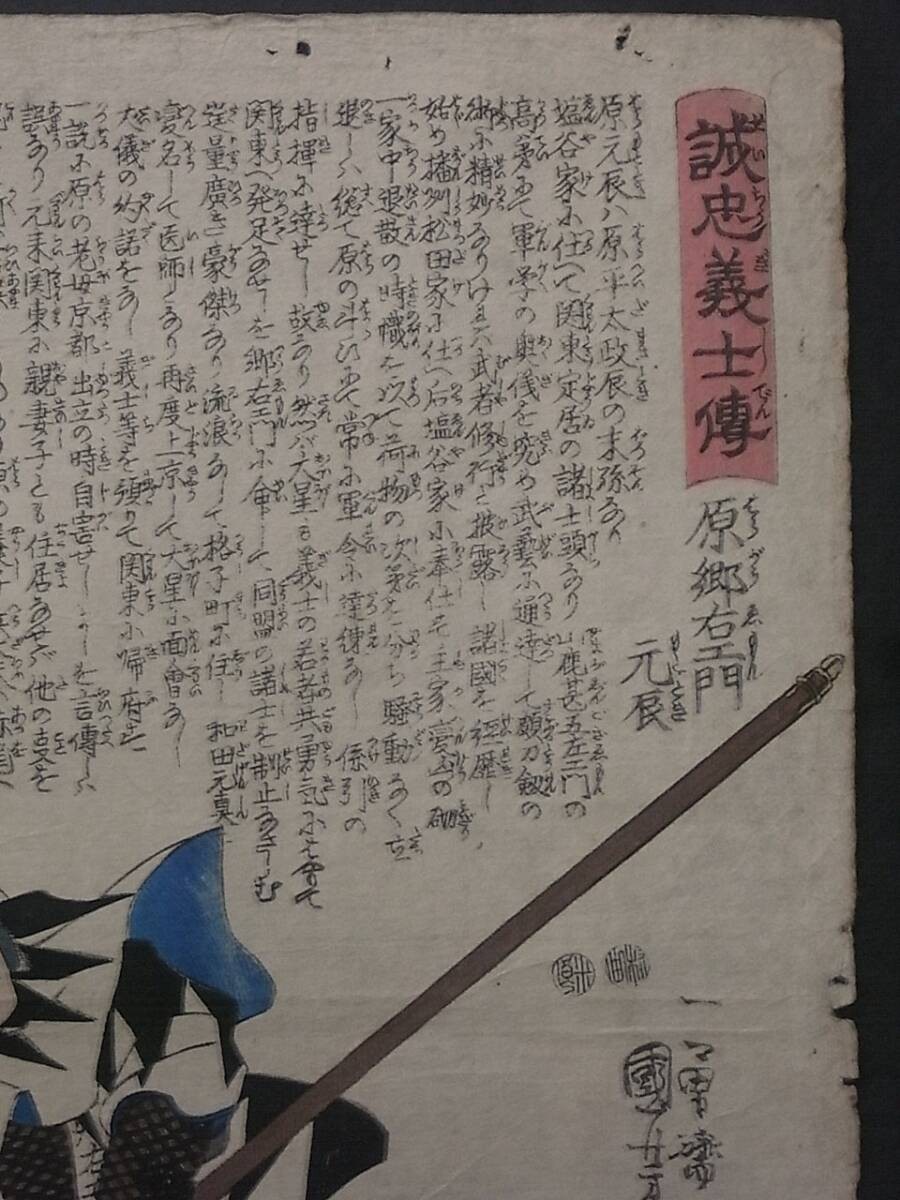 誠忠義士傳
原郷右エ門
元辰
原元辰ハ原平太政辰の末孫なり
塩谷家に仕へて関東定居の諸士頭なり山鹿甚五左エ門の
高弟にて軍学の奥儀を究め武藝に通達して頗刀劔の
術に精妙なりける武者修行と披露し諸國を経歴し
始め播州松田家に仕へ后塩谷家に奉仕す主家変山の砌
一家中退散の時幟を以て荷物の次第を分ち騒動なく立
退しハ総て原の斗ひにて常に軍令に達練なし係引の
指揮に達せし故なり然バ大星も義士の若者共勇気にはやりて
関東へ発足なせしを郷右エ門に命して同盟の諸士を制止なさしむ
度量廣き豪傑なり流浪なして格子町に住し和田元真と
変名して医師となり再度上京して大星に面會なし
大儀の約諾をなし義士等を預りて関東に帰府す
一説に原の老母京都出立の時自害せしよしを言傳しハ
誤なり元来関東に親妻子とも住居なせバ他の支を
一勇齋
國芳